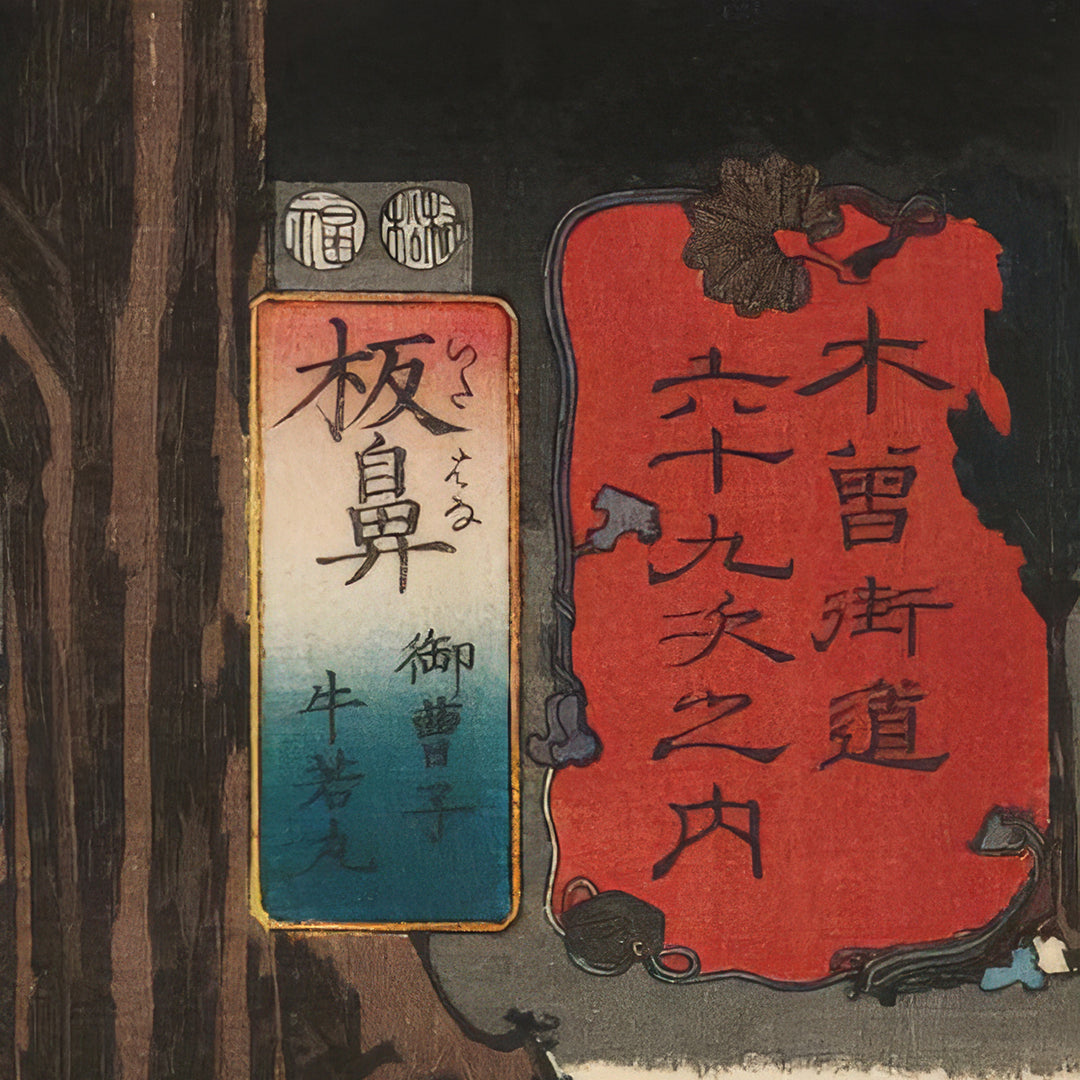 木曽街道
六十九次之内
福
村松
板鼻
いたはな
御曹子
牛若丸